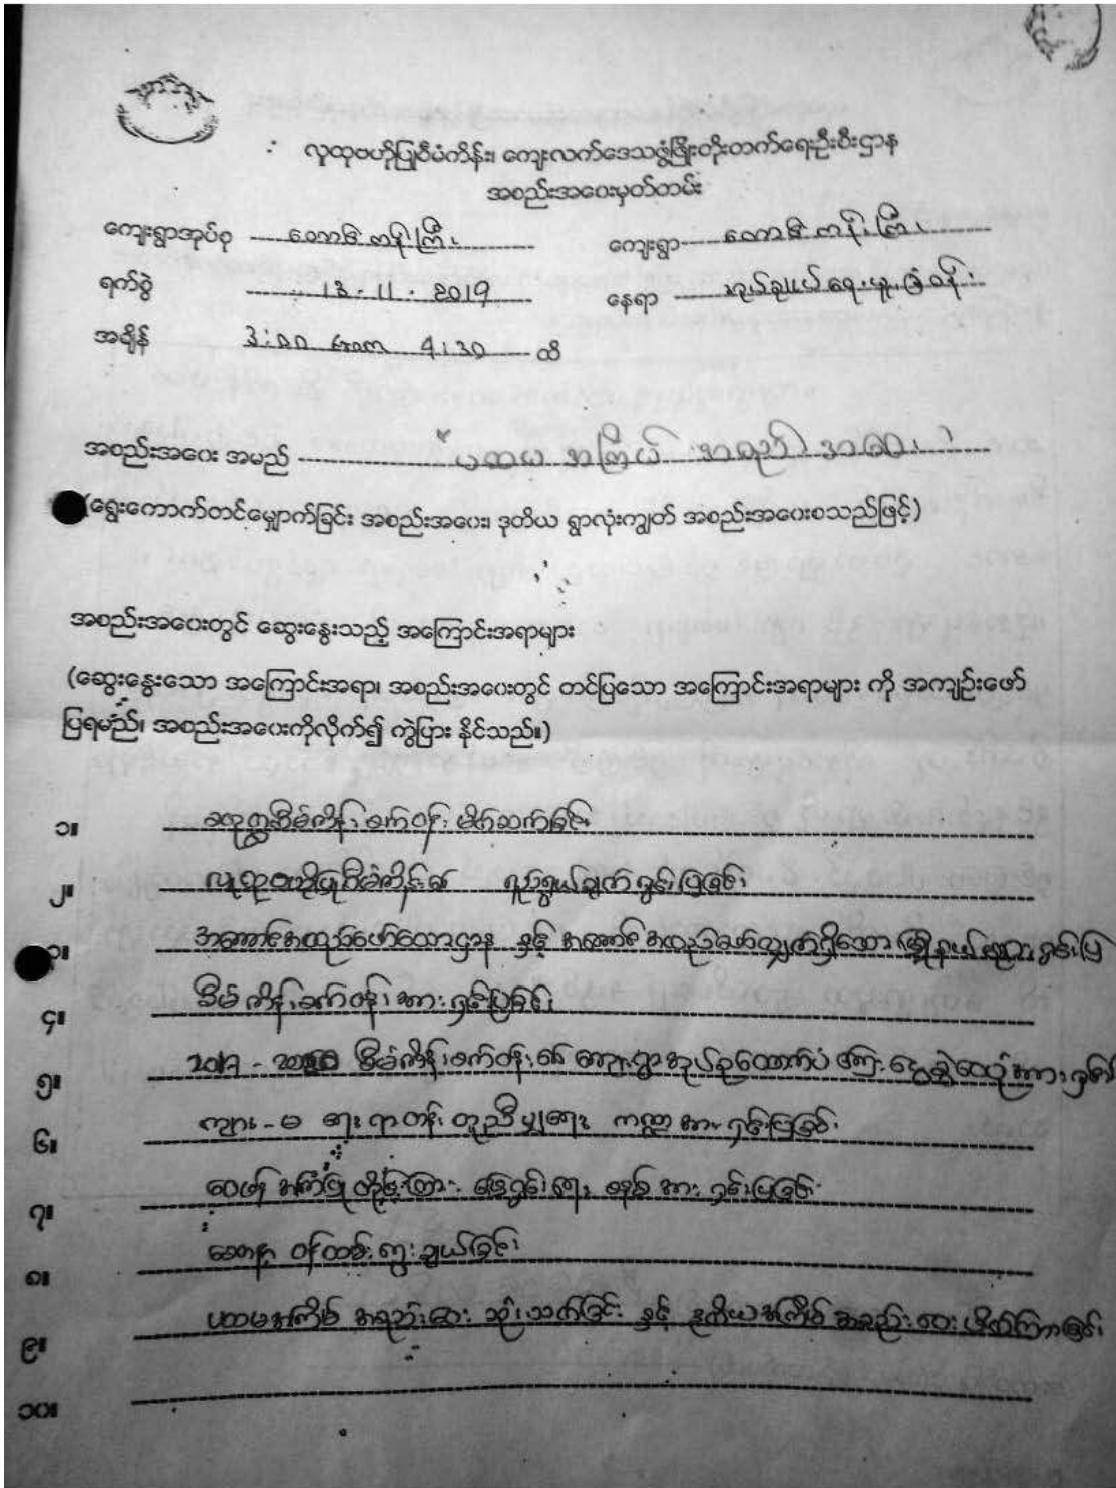 လူထုဗဟိုပြုစီမံကိန်း၊ ကျေးလက်ဒေသဖွံ့ဖြိုးတိုးတက်ရေးဦးစီးဌာန
အစည်းအဝေးမှတ်တမ်း
ကျေးရွာအုပ်စု ကျေးရွာ
ရက်စွဲ 13.11.2019 နေရာ
အချိန် 3:00 မှ 4:30 ထိ
အစည်းအဝေး အမည် ပထမ အကြိမ် အစည်းအဝေး
(ရွေးကောက်တင်မြှောက်ခြင်း အစည်းအဝေး၊ ဒုတိယ ရွာလုံးကျွတ် အစည်းအဝေးစသည်ဖြင့်)
အစည်းအဝေးတွင် ဆွေးနွေးသည့် အကြောင်းအရာများ
(ဆွေးနွေးသော အကြောင်းအရာ၊ အစည်းအဝေးတွင် တင်ပြသော အကြောင်းအရာများ ကို အကျဉ်းဖော်
ပြရမည်၊ အစည်းအဝေးကိုလိုက်၍ ကွဲပြား နိုင်သည်။)
၁။ စီမံကိန်း မိတ်ဆက်ခြင်း
၂။ လူထုဗဟိုပြုစီမံကိန်း၏ ရည်ရွယ်ချက် ရှင်းပြခြင်း
၃။ အကောင်အထည်ဖော်သောဌာန နှင့် အကောင်အထည်ဖော်လျှက်ရှိသော မြို့နယ်များ ရှင်းပြ
၄။ စီမံကိန်းစက်ဝန်းအား ရှင်းပြခြင်း
၅။ စီမံကိန်းစက်ဝန်း၏ ကျေးရွာအုပ်စုထောက်ပံ့ကြေး ငွေ အား
၆။ ကျား - မ ရေးရာ တန်းတူညီမျှရေး ကဏ္ဍအား ရှင်းပြခြင်း
၇။ ဝေဖန် အကြံပြု တိုင်ကြား ဖြေရှင်းရေး စနစ်အား ရှင်းပြခြင်း
၈။ စေတနာ့ ဝန်ထမ်း ရွေးချယ်ခြင်း
၉။ ပထမအကြိမ် အစည်းအဝေး နှင့် ဒုတိယအကြိမ် အစည်းအဝေး
၁၀။